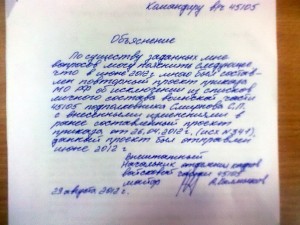 Командиру в/ч 45105
Объяснение
По существу заданных мне
вопросов могу пояснить следующее
что в июне 2012 г мною был составлен
повторный проект приказа
МО РФ об исключении из списков
личного состава воинской части
45105 подполковника Смирнова С.П.
с внесенными изменениями в
ранее составленный проект
приказа от 26.04.2012 г.
данный проект был отправлен
июне 2012 г
внештатный
Начальник отделения кадров
войсковой части 45105
майор
23 августа 2012 г.